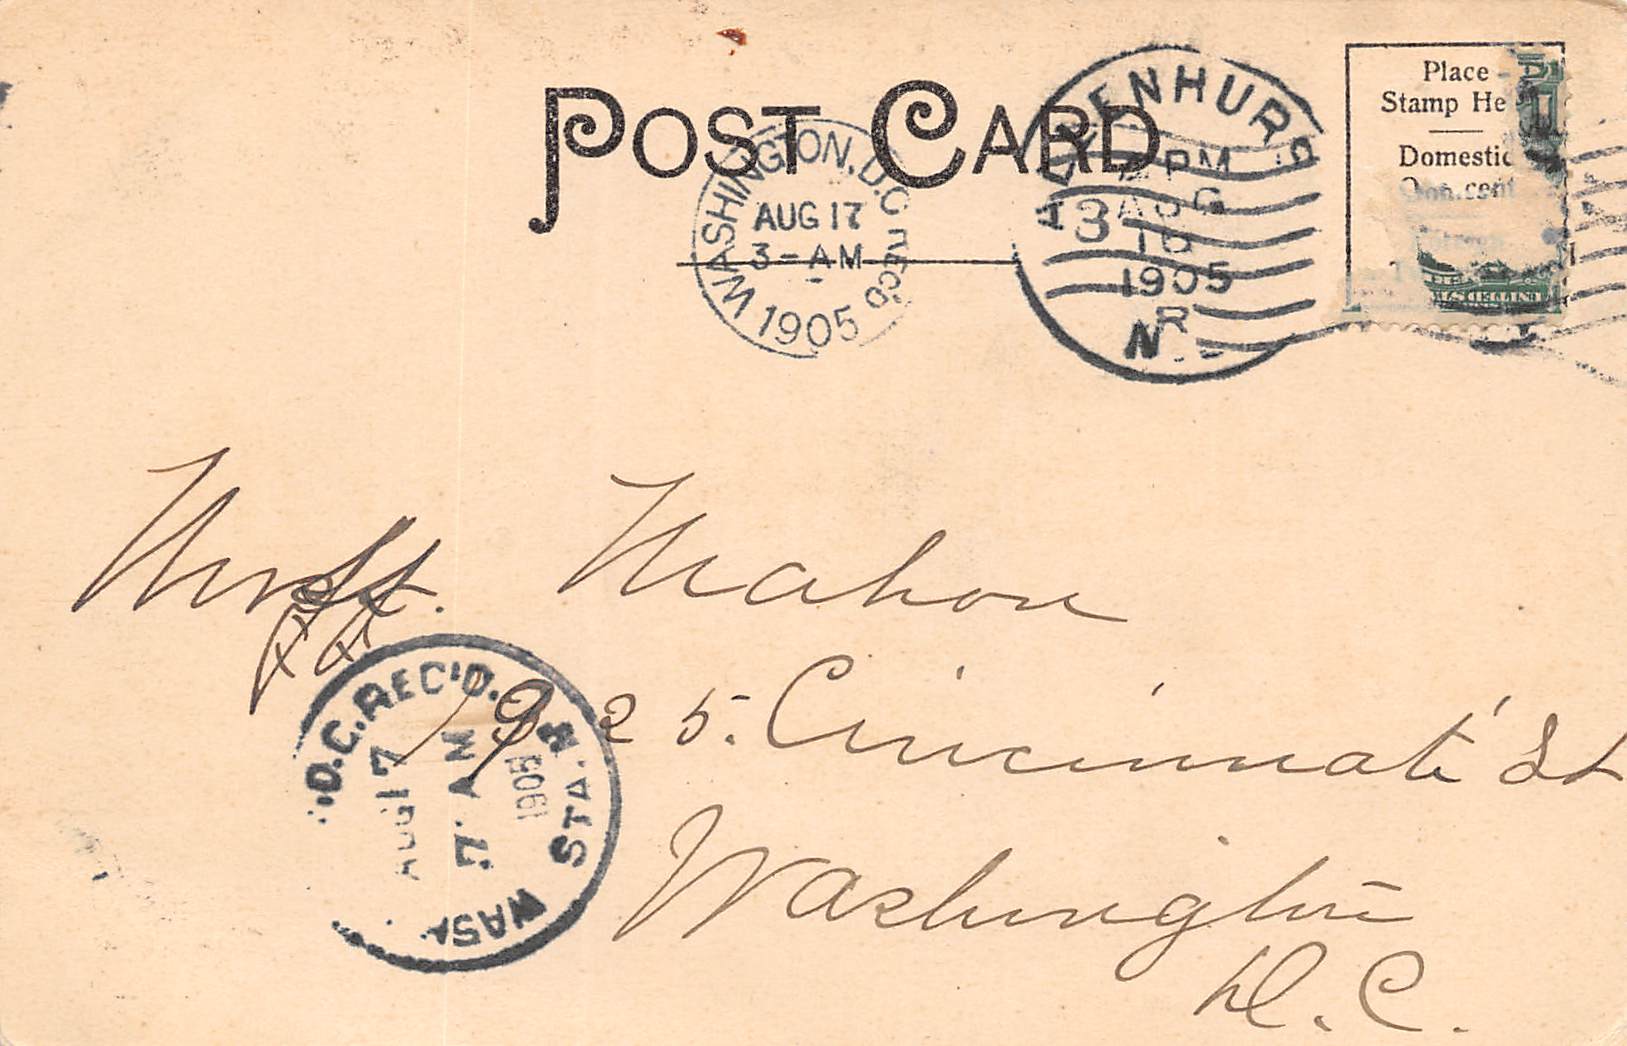 POST CARD
Place
Stamp He
Domestic
One cent
WASHINGTON, D.C. REC'D
AUG 17
3-AM
1905
ALLENHURS
PM
AUG
16
1905
N
13
UNITED S
Mahon
1925. Cincinnati St
Washington
D.C.
WASH. D.C. REC'D.
AUG 17
7 AM
1905
STA.